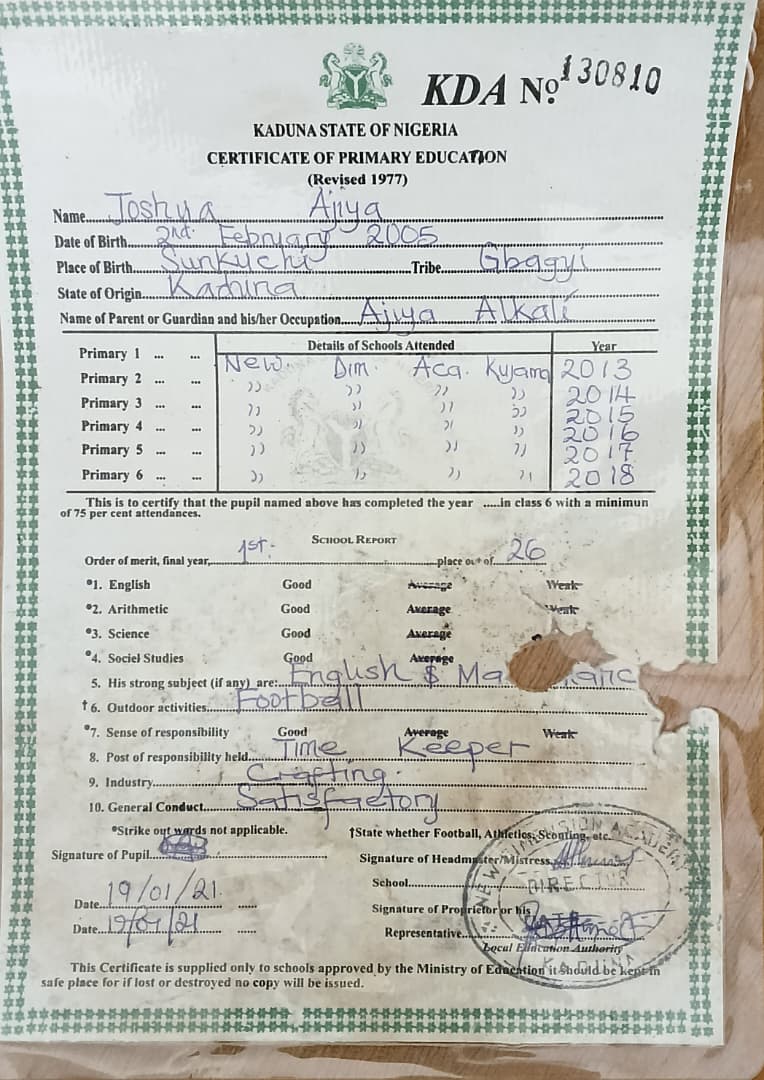 KDA No. 130810
KADUNA STATE OF NIGERIA
CERTIFICATE OF PRIMARY EDUCATION
(Revised 1977)
Name Joshua Ajiya
Date of Birth 2nd February 2005
Place of Birth Sunkuchi Tribe Gbagyi
State of Origin Kaduna
Name of Parent or Guardian and his/her Occupation Ajiya Alkali
Details of Schools Attended Year
Primary 1 ... ... New. Dim. Aca. Kujama 2013
Primary 2 ... ... " " " " 2014
Primary 3 ... ... " " " " 2015
Primary 4 ... ... " " " " 2016
Primary 5 ... ... " " " " 2017
Primary 6 ... ... " " " " 2018
This is to certify that the pupil named above has completed the year .....in class 6 with a minimun
of 75 per cent attendances.
SCHOOL REPORT
Order of merit, final year, 1st. place out of 26
*1. English Good Average Weak
*2. Arithmetic Good Average Weak
*3. Science Good Average
*4. Sociel Studies Good Average
5. His strong subject (if any) are: English $
†6. Outdoor activities Football
*7. Sense of responsibility Good Average Weak
8. Post of responsibility held Time Keeper
9. Industry Crafting.
10. General Conduct Satisfactory
*Strike out words not applicable. †State whether Football, Athletics, Scouting, etc.
Signature of Pupil Signature of Headmaster/Mistress
School
Date 19/01/21
Signature of Proprietor or his
Date 19/01/21
Representative
Local Education Authority
NEW DIMENSION ACADEMY
DIRECTOR
KADUNA
This Certificate is supplied only to schools approved by the Ministry of Education it should be kept in
safe place for if lost or destroyed no copy will be issued.